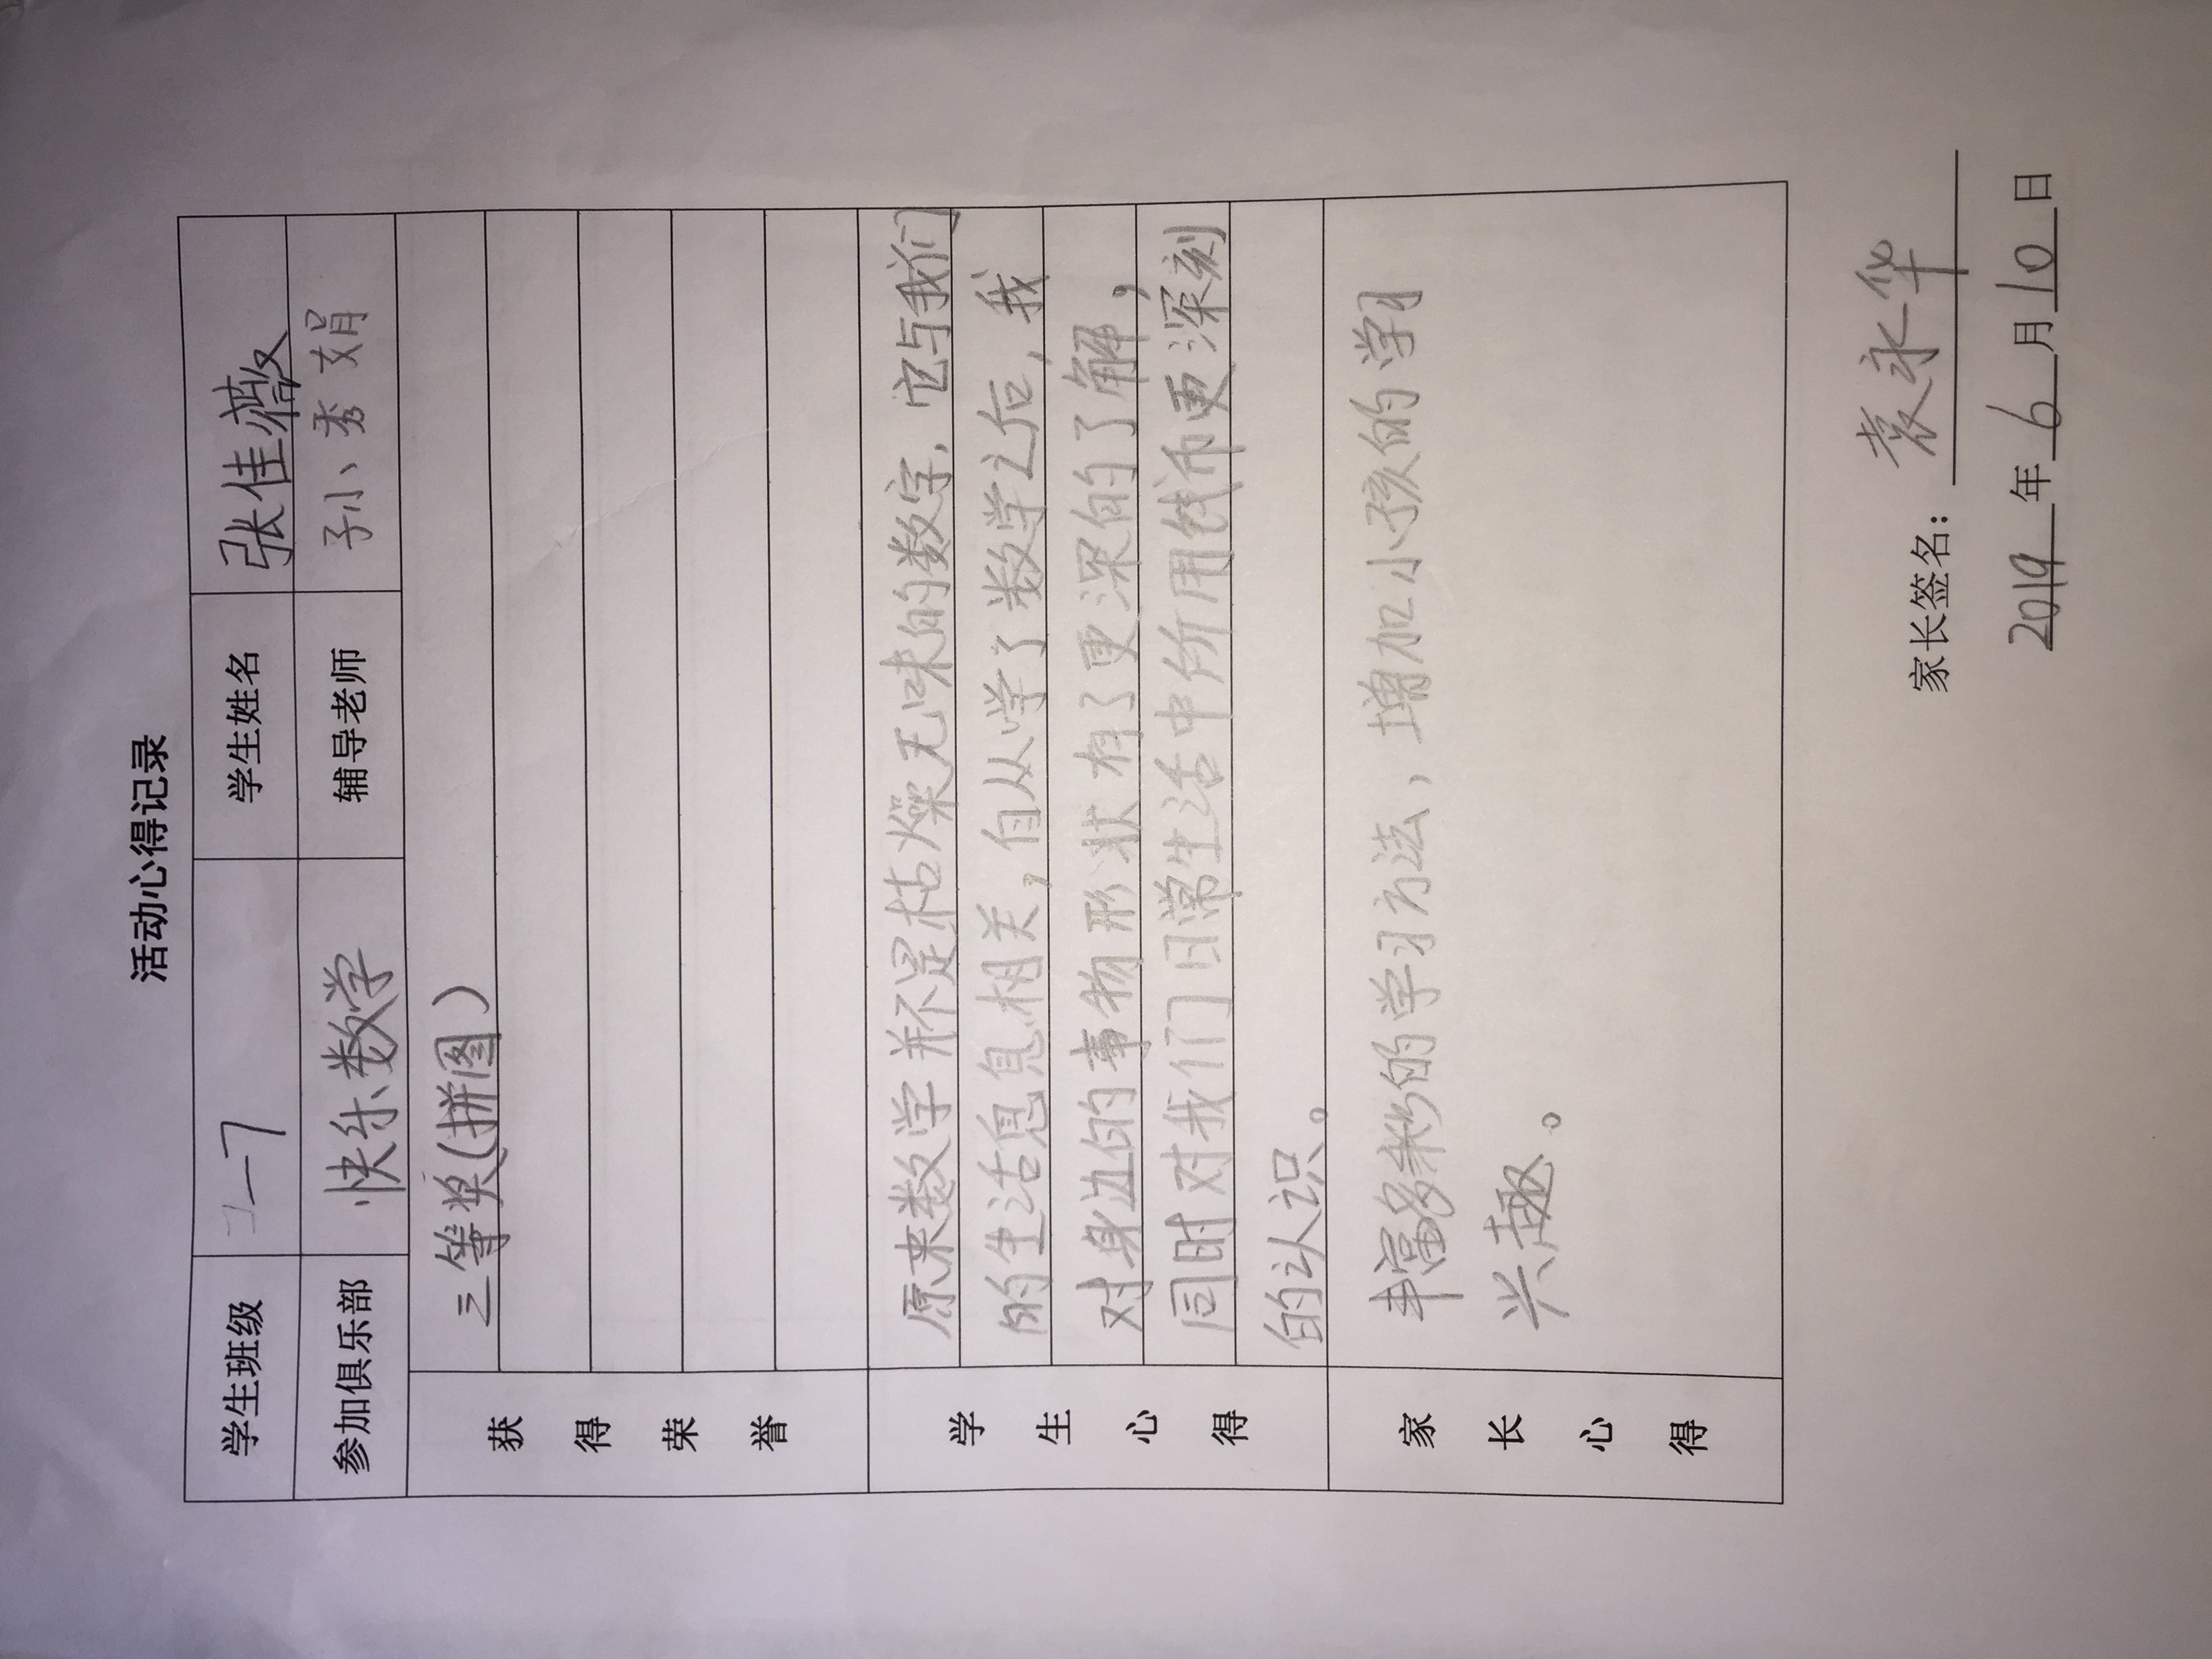 活动心得记录
学生班级 2—7 学生姓名 张佳薇
参加俱乐部 快乐数学 辅导老师 孙小秀娟
获得荣誉 三等奖(拼图)
学生心得
原来数学并不是枯燥无味的数字，它与我们
的生活息息相关，自从学了数学之后，我
对身边的事物形状有了更深的了解，
同时对我们日常生活中所用钱币更深刻
的认识。
家长心得
丰富多彩的学习方法，增加小孩的学习
兴趣。
家长签名：袁永华
2019年6月10日